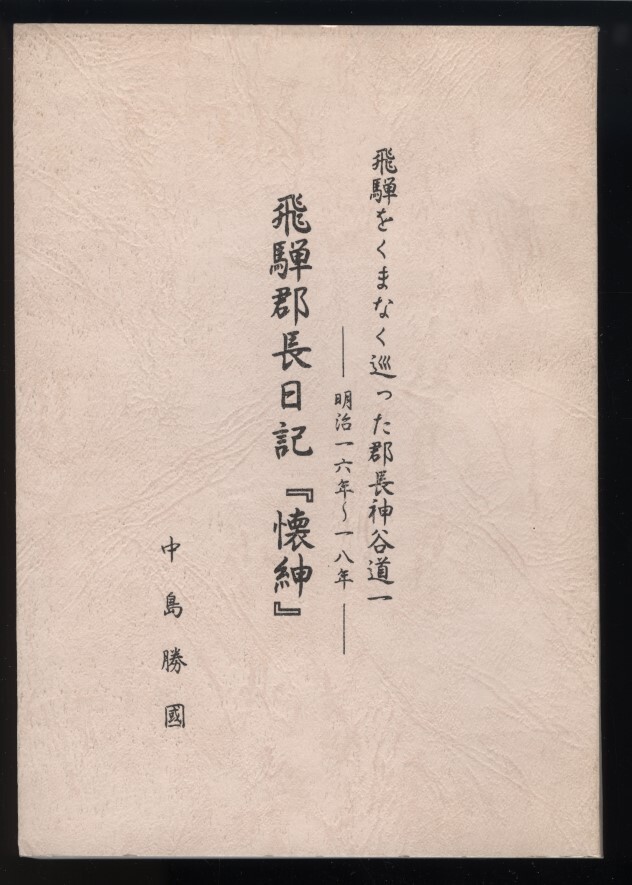 飛騨をくまなく巡った郡長神谷道一
――明治一六年～一八年――
飛騨郡長日記『懐紳』
中島勝國